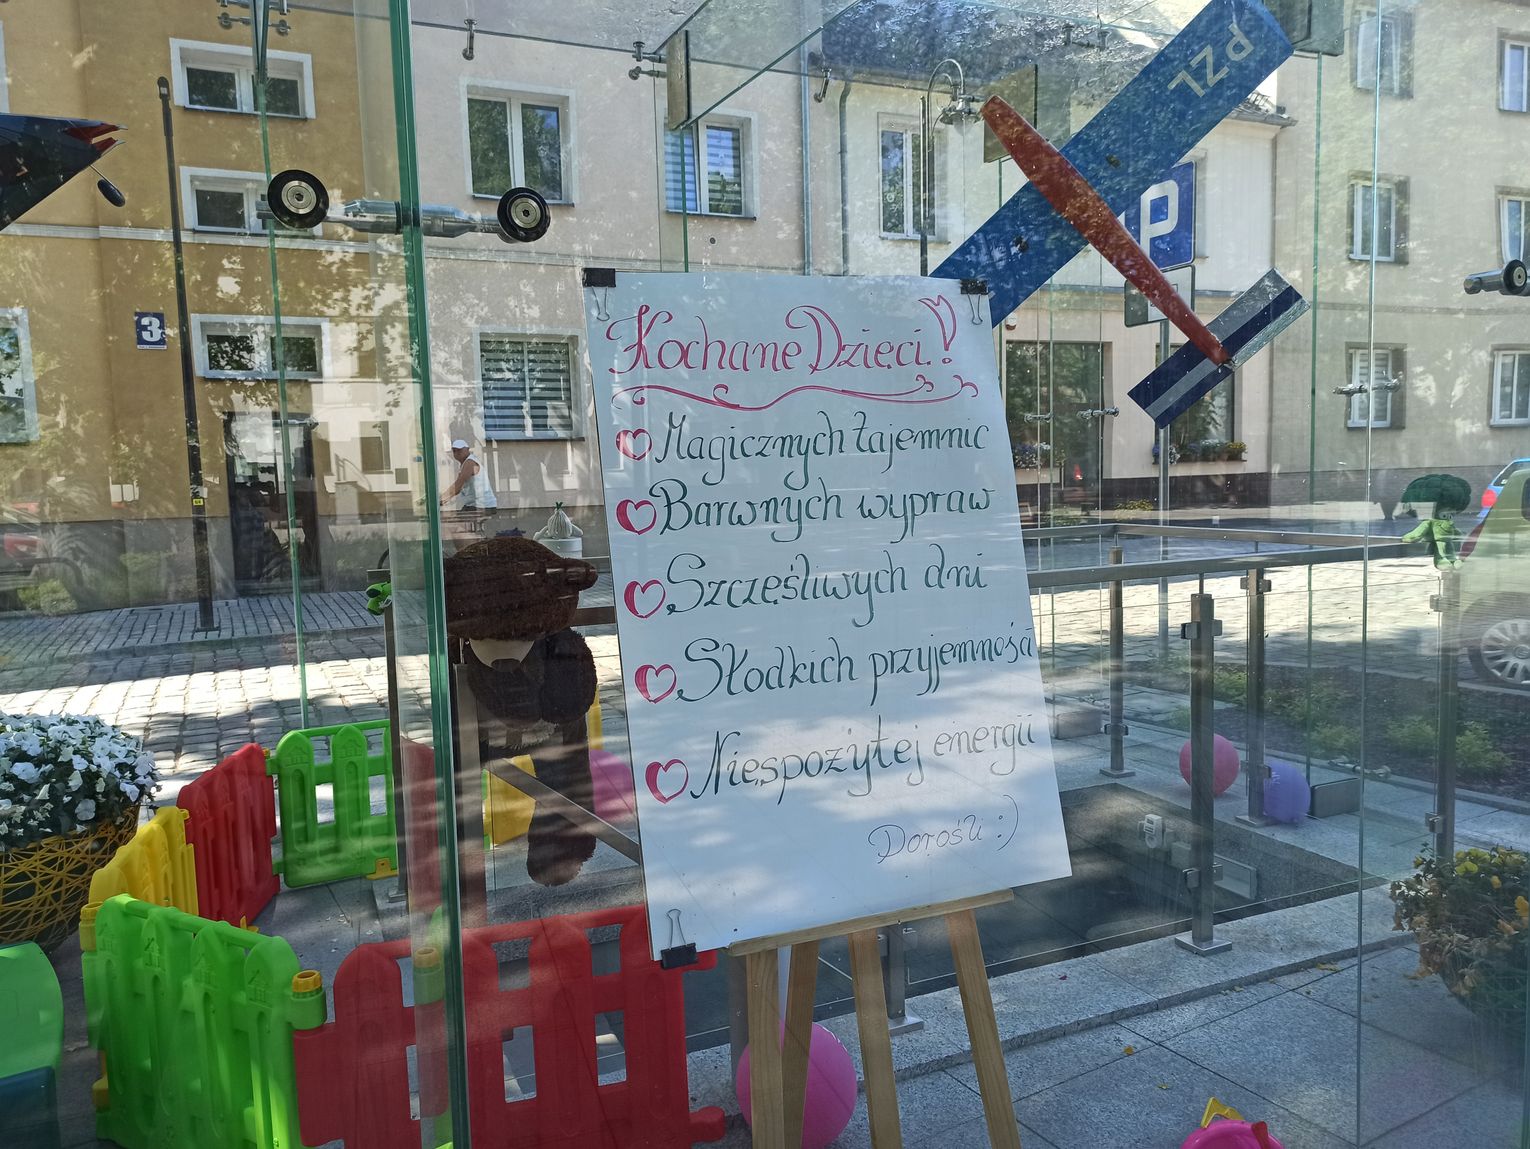 PZL
P
3
Kochane Dzieci!
Magicznych tajemnic
Barwnych wypraw
Szczęśliwych dni
Słodkich przyjemności
Niespożytej energii
Dorośli :)